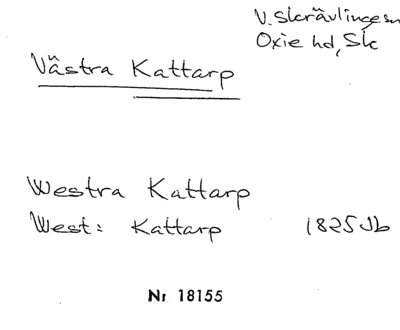 V. Skrävlinge sn
Oxie hd, Sk
Västra Kattarp
Westra Kattarp
West: Kattarp 1825 Jb
Nr 18155